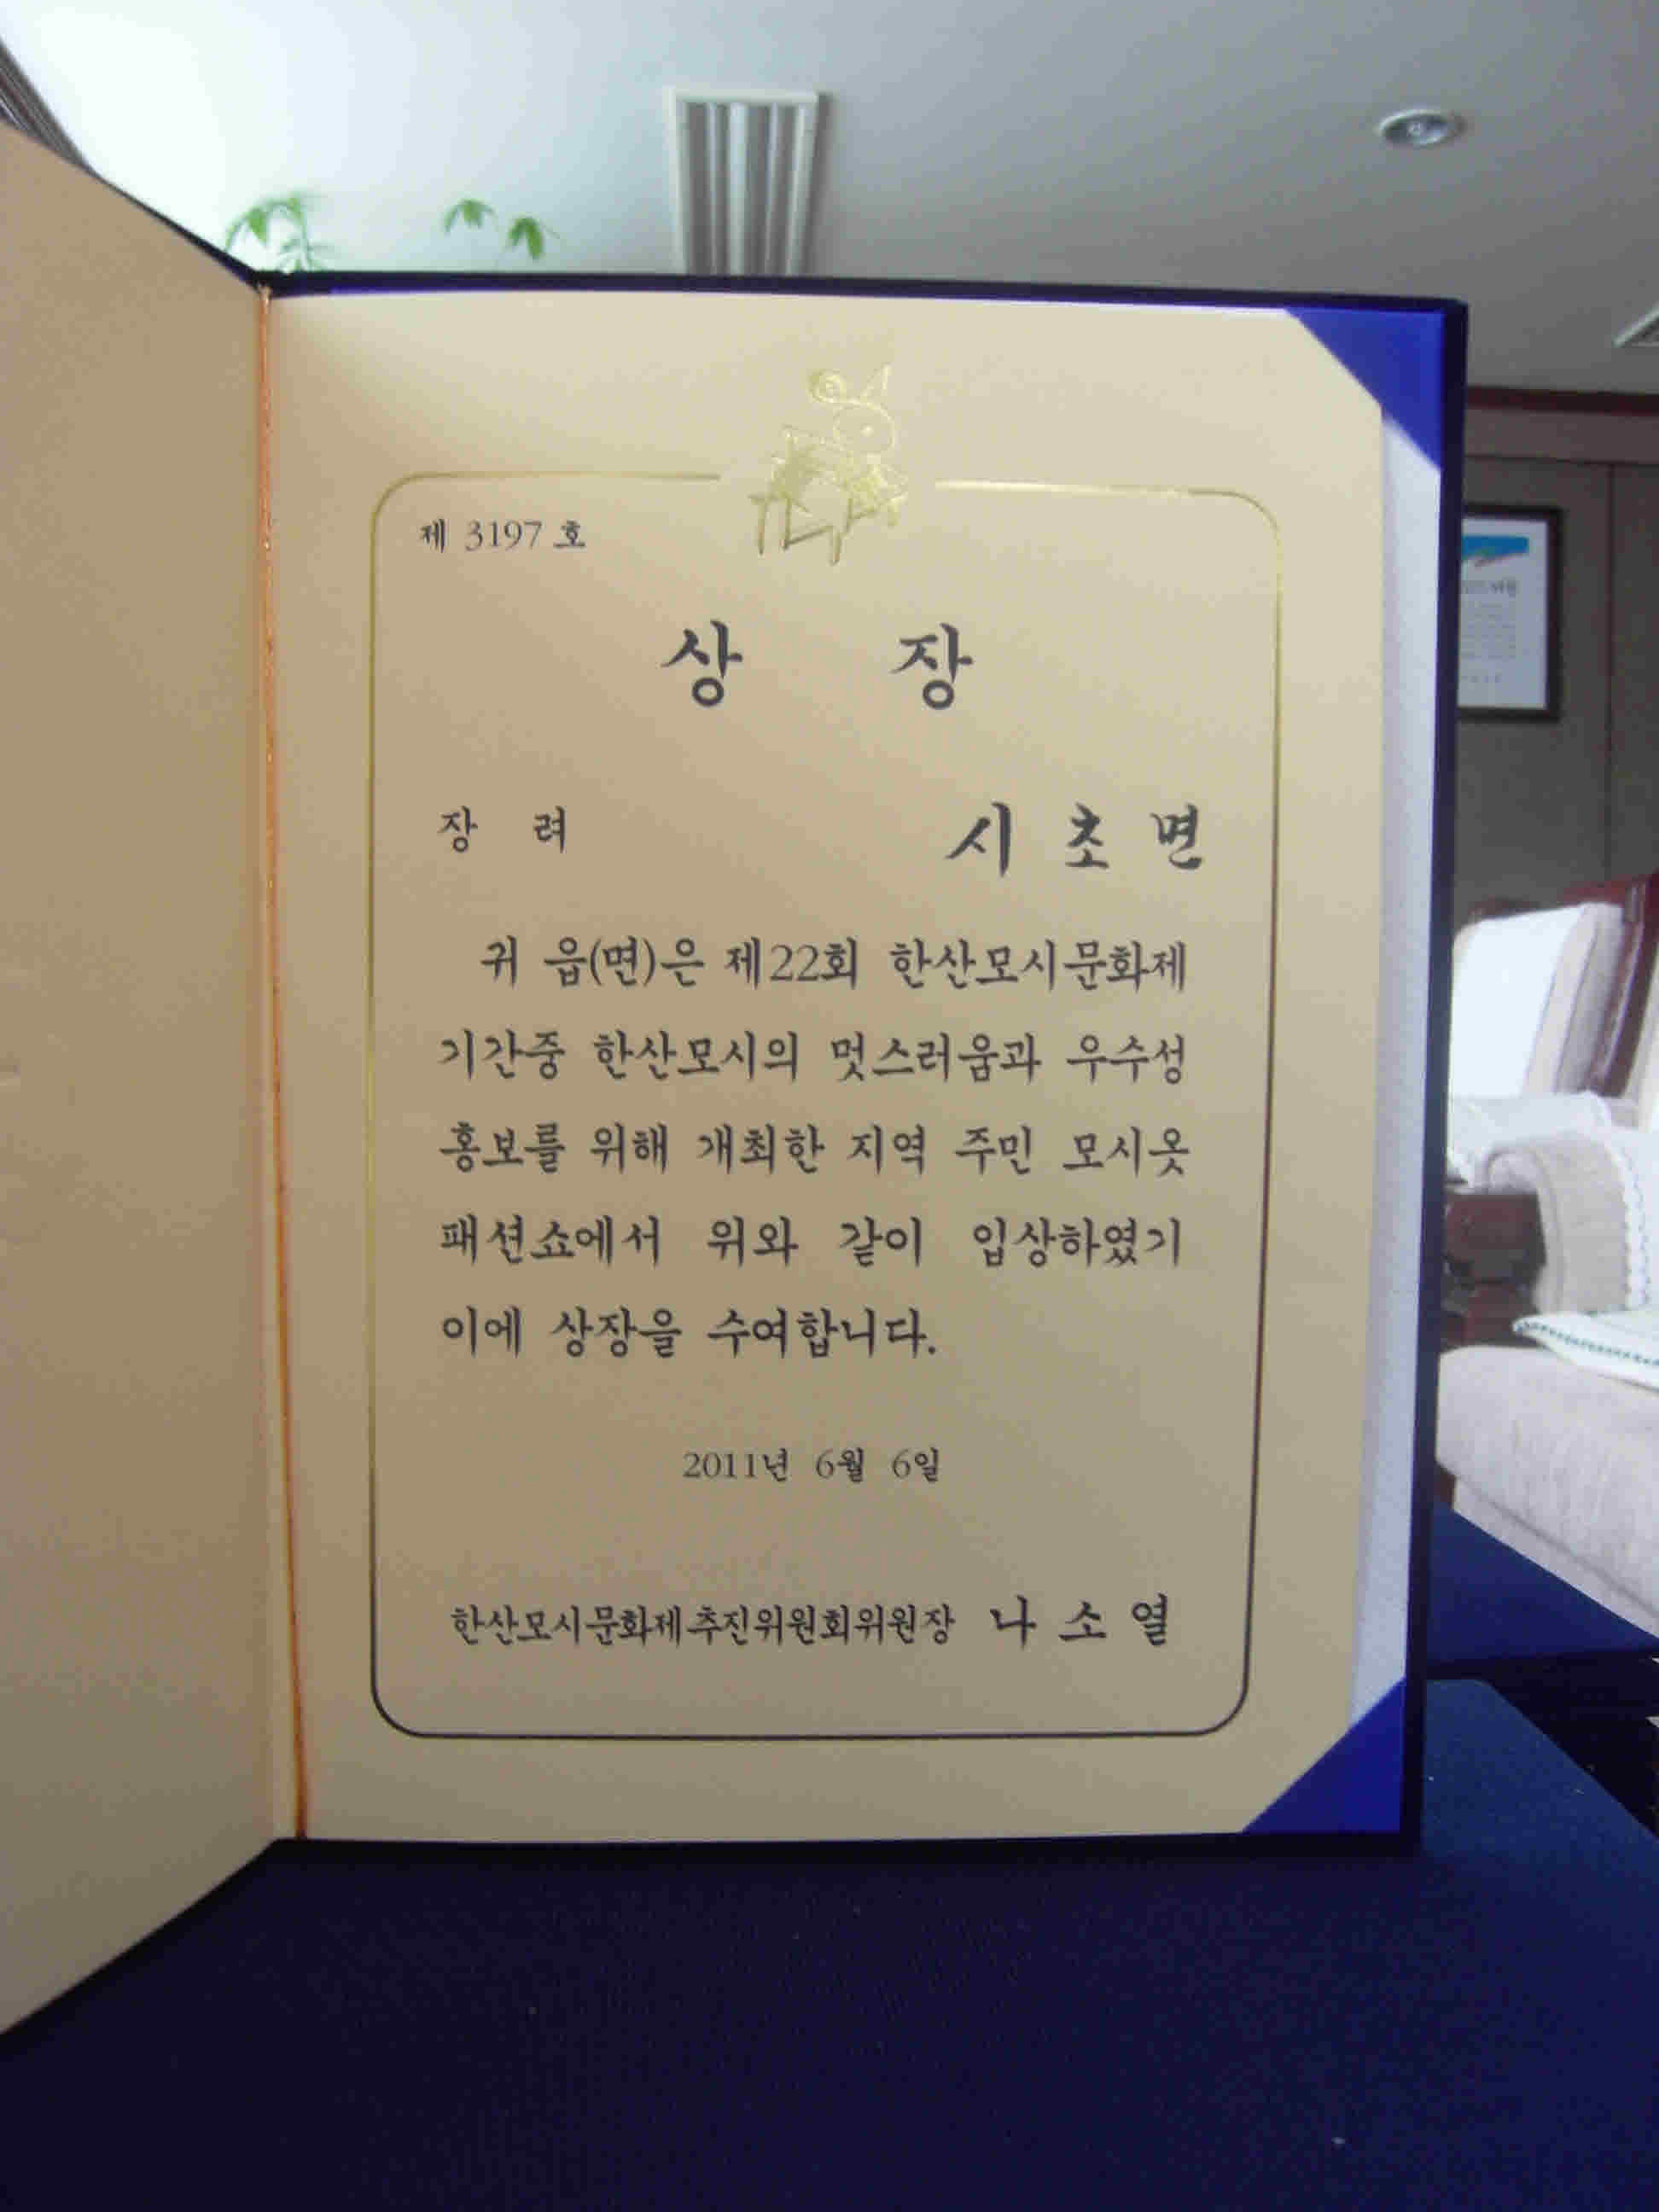 제 3197 호
상 장
장 려
시 초 면
귀 읍(면)은 제22회 한산모시문화제
기간중 한산모시의 멋스러움과 우수성
홍보를 위해 개최한 지역 주민 모시옷
패션쇼에서 위와 같이 입상하였기
이에 상장을 수여합니다.
2011년 6월 6일
한산모시문화제추진위원회위원장 나 소 열